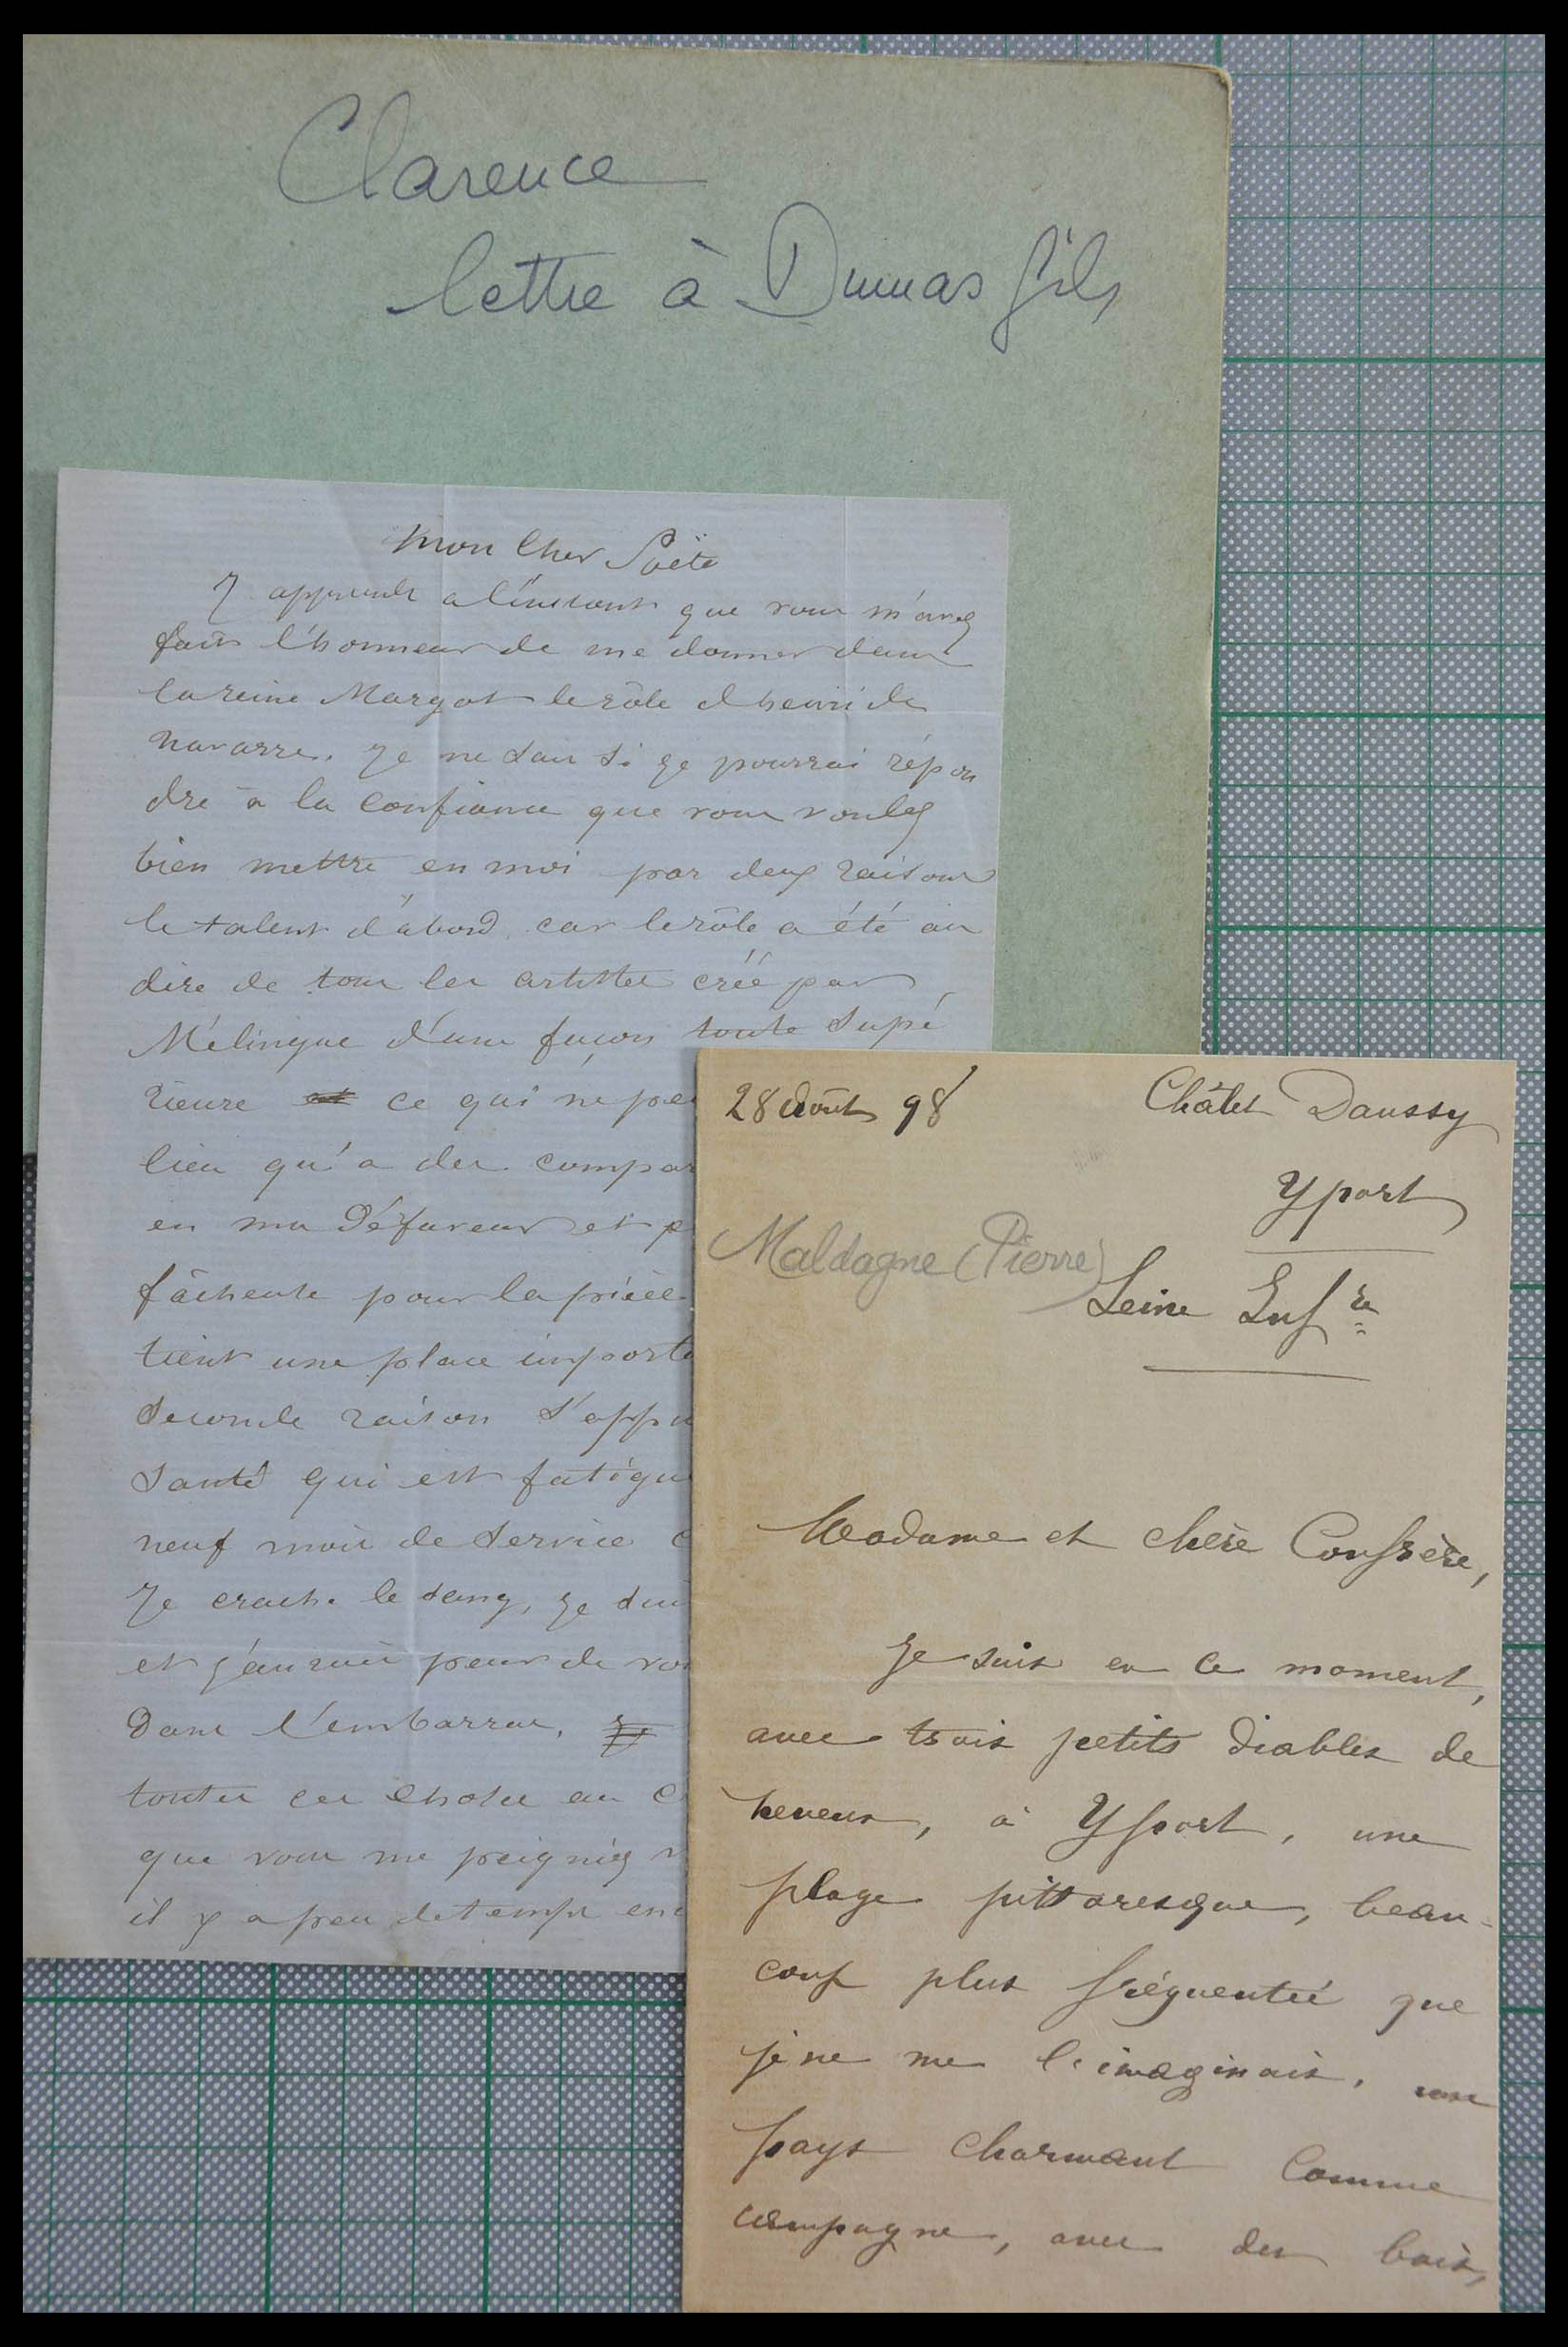 Clarence
lettre à Dumas fils
Mon Cher Poëte
J apprends a l'instant que vous m'avez
fait l'honneur de me donner dans
la reine Margot le rôle d henri de
navarre. Je ne sais si je pourrai répon
dre a la confiance que vous voulez
bien mettre en moi par deux raisons
le talent d'abord car le rôle a été au
dire de tous les artistes créé par
Mélingue d'une façon toute supé
rieure ce qui ne pe
lieu qu'a des compar
en ma défaveur et p
fâcheuse pour la pièce
tient une place importa
seconde raison s'appu
santé qui est fatigu
neuf mois de service
Je crache le sang, je sui
et j'aurais peur de vou
dans l'embarras.
toutes ces choses au c
que vous me peigniez
il y a peu de temps enc
28 Août 98
Châlet Daussy
Yport
Maldagne (Pierre)
Seine Infre
Madame et chère Confrère,
Je suis en ce moment,
avec trois petits diables de
neveux, à Yport, une
plage pittoresque, beau-
coup plus fréquentée que
je ne me l'imaginais, un
pays charmant comme
campagne, avec des bois,